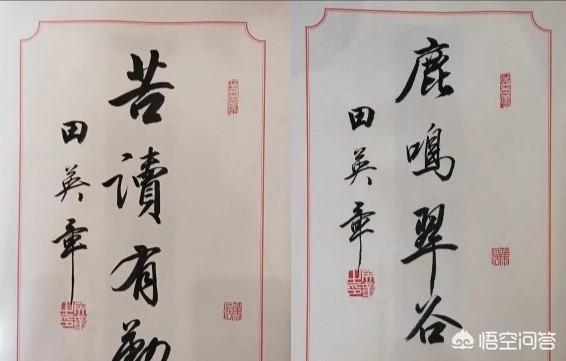 苦讀有
田英章
鹿鳴翠谷
田英章
悟空问答